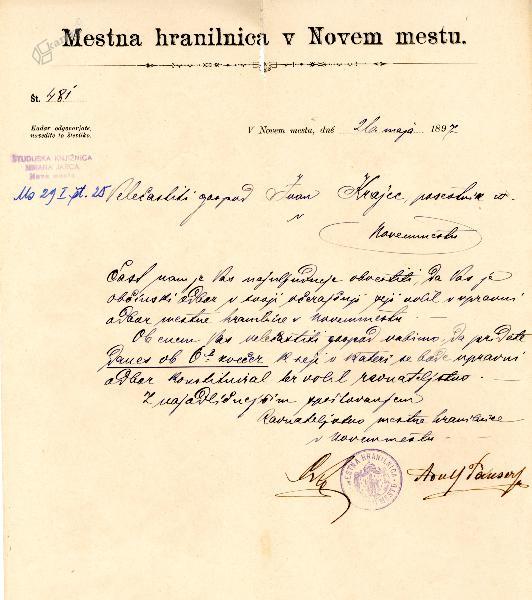 Mestna hranilnica v Novem mestu.
Št. 481
Kadar odgovarjate,
navedite to številko.
V Novem mestu, dné 21a maja 1897
ŠTUDIJSKA KNJIŽNICA
MIRANA JARCA
Novo mesto
Velečastiti gospod Ivan Krajec, posestnik
v
Novemmestu
Čast nam je Vas najuljudneje obvestiti, da Vas je
občinski odbor v svoji včerajšnji seji volil v upravni
odbor mestne hranilnice v Novemmestu
Obenem Vas velečastiti gospod vabimo, da pridete
danes ob 6h zvečer k seji v kateri se bode upravni
odbor konstituiral ter volil ravnateljstvo.
Z najodličnejšim spoštovanjem
Ravnateljstvo mestne hranilnice
v Novemmestu
MESTNA HRANILNICA
Adolf Pauser